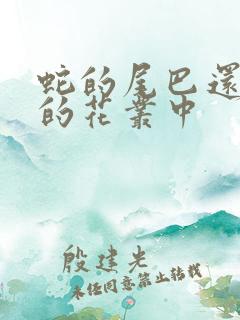 蛇的尾巴還
的花叢中
殷建光
未经同意禁止转载